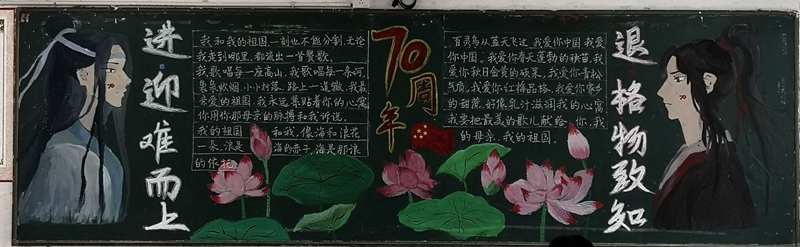 进迎难而上
我和我的祖国,一刻也不能分割,无论
我走到哪里,都流出一首赞歌。
我歌唱每一座高山,我歌唱每一条河,
袅袅炊烟,小小村落,路上一道辙,我最
亲爱的祖国,我永远靠贴着你的心窝
你用你那母亲的脉搏和我诉说。
我的祖国和我,像海和浪花
一朵,浪是海的赤子,海是那浪
的依托
70周年
百灵鸟从蓝天飞过,我爱你中国,我爱
你中国,我爱你春天蓬勃的秧苗,我
爱你秋日金黄的硕果,我爱你青松
气质,我爱你红梅品格,我爱你家乡
的甜蔗,好像乳汁滋润我的心窝
我要把最美的歌儿献给你,我
的母亲,我的祖国。
退格物致知